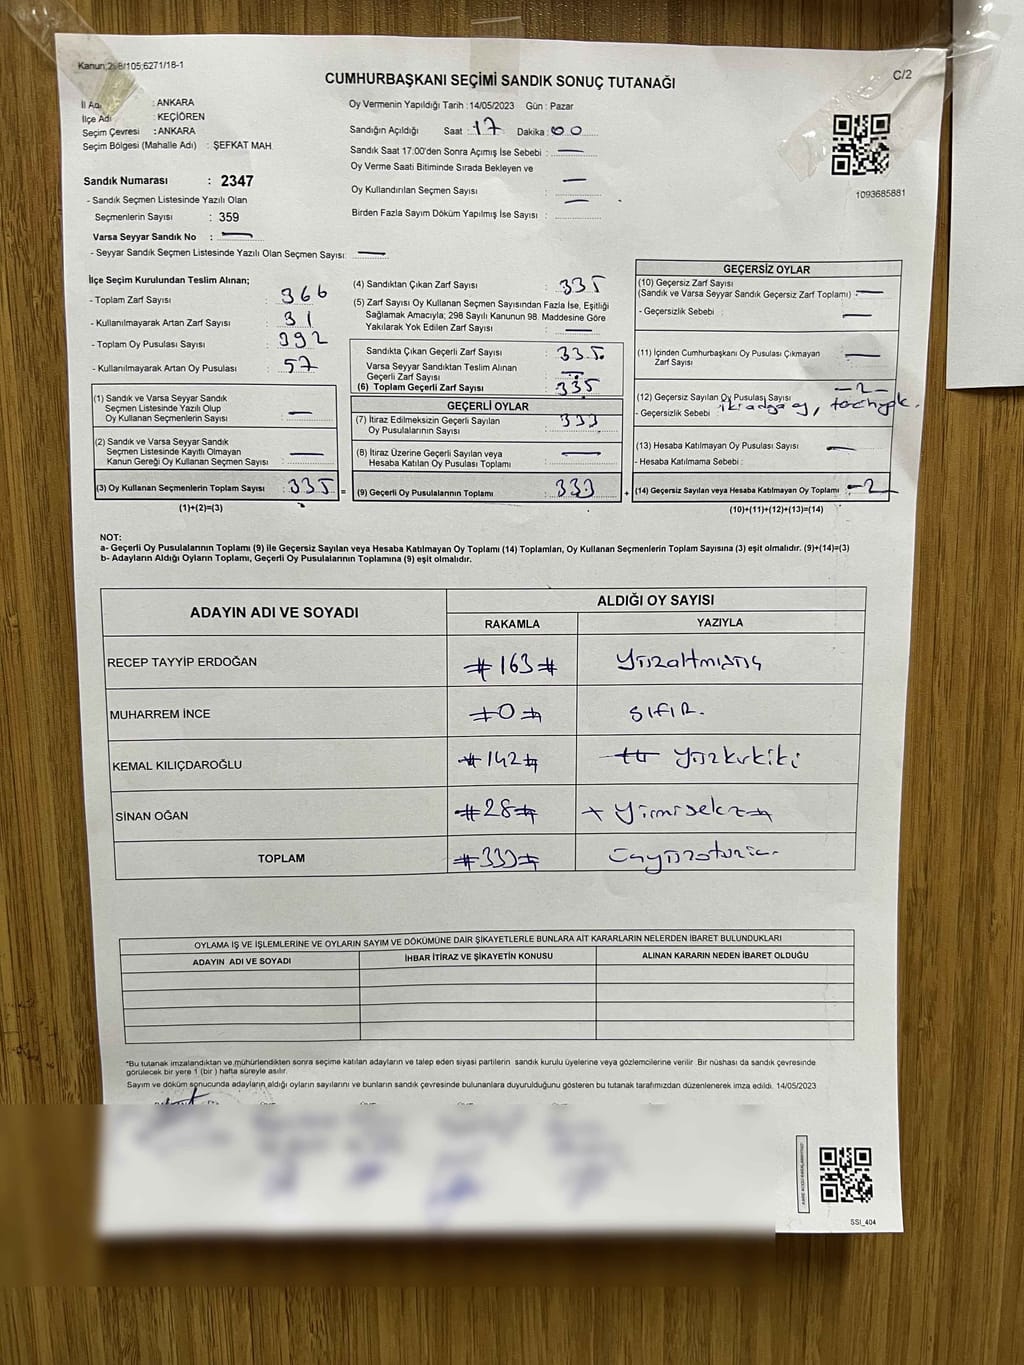 Kanun:298/105;6271/18-1
CUMHURBAŞKANI SEÇİMİ SANDIK SONUÇ TUTANAĞI
C/2
İl Adı : ANKARA
İlçe Adı : KEÇİÖREN
Seçim Çevresi : ANKARA
Seçim Bölgesi (Mahalle Adı) : ŞEFKAT MAH.
Sandık Numarası : 2347
- Sandık Seçmen Listesinde Yazılı Olan
Seçmenlerin Sayısı : 359
Varsa Seyyar Sandık No : —
- Seyyar Sandık Seçmen Listesinde Yazılı Olan Seçmen Sayısı: —
Oy Vermenin Yapıldığı Tarih :14/05/2023 Gün : Pazar
Sandığın Açıldığı Saat : 17 Dakika : 00
Sandık Saat 17:00'den Sonra Açımış İse Sebebi : —
Oy Verme Saati Bitiminde Sırada Bekleyen ve
Oy Kullandırılan Seçmen Sayısı : —
Birden Fazla Sayım Döküm Yapılmış İse Sayısı : —
1093685881
İlçe Seçim Kurulundan Teslim Alınan;
- Toplam Zarf Sayısı : 366
- Kullanılmayarak Artan Zarf Sayısı : 31
- Toplam Oy Pusulası Sayısı : 392
- Kullanılmayarak Artan Oy Pusulası : 57
(1) Sandık ve Varsa Seyyar Sandık
Seçmen Listesinde Yazılı Olup
Oy Kullanan Seçmenlerin Sayısı : —
(2) Sandık ve Varsa Seyyar Sandık
Seçmen Listesinde Kayıtlı Olmayan
Kanun Gereği Oy Kullanan Seçmen Sayısı : —
(3) Oy Kullanan Seçmenlerin Toplam Sayısı : 335 =
(1)+(2)=(3)
(4) Sandıktan Çıkan Zarf Sayısı : 335
(5) Zarf Sayısı Oy Kullanan Seçmen Sayısından Fazla İse, Eşitliği
Sağlamak Amacıyla; 298 Sayılı Kanunun 98. Maddesine Göre
Yakılarak Yok Edilen Zarf Sayısı : —
Sandıkta Çıkan Geçerli Zarf Sayısı : 335
Varsa Seyyar Sandıktan Teslim Alınan
Geçerli Zarf Sayısı : —
(6) Toplam Geçerli Zarf Sayısı : 335
GEÇERLİ OYLAR
(7) İtiraz Edilmeksizin Geçerli Sayılan
Oy Pusulalarının Sayısı : 333
(8) İtiraz Üzerine Geçerli Sayılan veya
Hesaba Katılan Oy Pusulası Toplamı : —
(9) Geçerli Oy Pusulalarının Toplamı : 333 +
GEÇERSİZ OYLAR
(10) Geçersiz Zarf Sayısı
(Sandık ve Varsa Seyyar Sandık Geçersiz Zarf Toplamı) : —
- Geçersizlik Sebebi : —
(11) İçinden Cumhurbaşkanı Oy Pusulası Çıkmayan
Zarf Sayısı : —
(12) Geçersiz Sayılan Oy Pusulası Sayısı : -2-
- Geçersizlik Sebebi
(13) Hesaba Katılmayan Oy Pusulası Sayısı : —
- Hesaba Katılmama Sebebi :
(14) Geçersiz Sayılan veya Hesaba Katılmayan Oy Toplamı : -2-
(10)+(11)+(12)+(13)=(14)
NOT:
a- Geçerli Oy Pusulalarının Toplamı (9) ile Geçersiz Sayılan veya Hesaba Katılmayan Oy Toplamı (14) Toplamları, Oy Kullanan Seçmenlerin Toplam Sayısına (3) eşit olmalıdır. (9)+(14)=(3)
b- Adayların Aldığı Oyların Toplamı, Geçerli Oy Pusulalarının Toplamına (9) eşit olmalıdır.
ADAYIN ADI VE SOYADI
ALDIĞI OY SAYISI
RAKAMLA YAZIYLA
RECEP TAYYİP ERDOĞAN #163# yüzaltmışüç
MUHARREM İNCE #0# sıfır.
KEMAL KILIÇDAROĞLU #142# yüzkırkiki
SİNAN OĞAN #28# yirmisekiz
TOPLAM #333#
OYLAMA İŞ VE İŞLEMLERİNE VE OYLARIN SAYIM VE DÖKÜMÜNE DAİR ŞİKAYETLERLE BUNLARA AİT KARARLARIN NELERDEN İBARET BULUNDUKLARI
ADAYIN ADI VE SOYADI İHBAR İTİRAZ VE ŞİKAYETİN KONUSU ALINAN KARARIN NEDEN İBARET OLDUĞU
*Bu tutanak imzalandıktan ve mühürlendikten sonra seçime katılan adayların ve talep eden siyasi partilerin sandık kurulu üyelerine veya gözlemcilerine verilir. Bir nüshası da sandık çevresinde
görülecek bir yere 1 (bir ) hafta süreyle asılır.
Sayım ve döküm sonucunda adayların aldığı oyların sayılarını ve bunların sandık çevresinde bulunanlara duyurulduğunu gösteren bu tutanak tarafımızdan düzenlenerek imza edildi. 14/05/2023
SSI_404